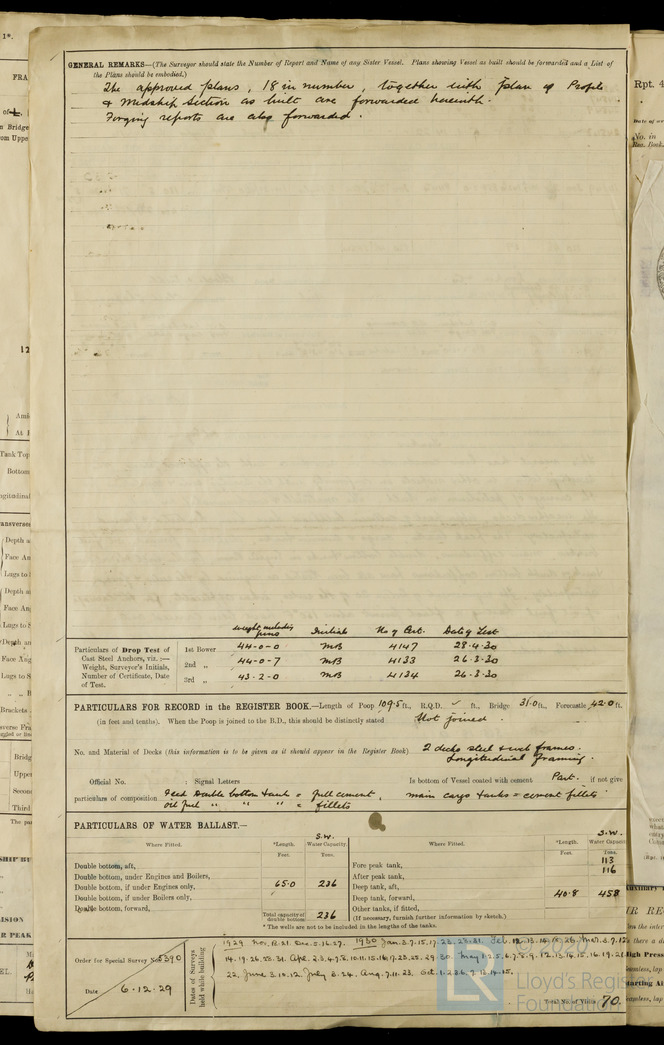 GENERAL REMARKS—(The Surveyor should state the Number of Report and Name of any Sister Vessel. Plans showing Vessel as built should be forwarded and a List of
the Plans should be embodied.)
The approved plans, 18 in number, together with plan of Profile
& Midship Section as built are forwarded herewith.
Forging reports are also forwarded.
weight including pins Initials No of Cert. Date of Test
Particulars of Drop Test of Cast Steel Anchors, viz.:— Weight, Surveyor's Initials, Number of Certificate, Date of Test.
1st Bower 44-0-0 MB 4147 28.4.30
2nd „ 44-0-7 MB 4133 26.3.30
3rd „ 43.2.0 MB 4134 26.3.30
PARTICULARS FOR RECORD in the REGISTER BOOK.—Length of Poop 109.5 ft., R.Q.D. ✓ ft., Bridge 31.0 ft., Forecastle 42.0 ft.
(in feet and tenths). When the Poop is joined to the B.D., this should be distinctly stated Not joined.
No. and Material of Decks (this information is to be given as it should appear in the Register Book) 2 decks steel & web frames.
Longitudinal Framing.
Official No. ; Signal Letters Is bottom of Vessel coated with cement Part. if not give
particulars of composition Feed Double bottom tank = full cement, main cargo tanks = cement fillets.
Oil fuel „ „ „ = fillets
PARTICULARS OF WATER BALLAST.—
Where Fitted. *Length. Feet. S.W. Water Capacity. Tons. Where Fitted. *Length. Feet. S.W. Water Capacity. Tons.
Double bottom, aft, Fore peak tank, 113
Double bottom, under Engines and Boilers, After peak tank, 116
Double bottom, if under Engines only, 65.0 236 Deep tank, aft,
Double bottom, if under Boilers only, Deep tank, forward, 40.8 458
Double bottom, forward, Total capacity of double bottom 236 Other tanks, if fitted,
(If necessary, furnish further information by sketch.)
* The wells are not to be included in the lengths of the tanks.
Order for Special Survey No. 5390
Date 6.12.29
Dates of Surveys held while building
1929 Nov. Dec. 5.16.27. 1930 Jan. 3.7.15.17. Feb. Mar. 3.7.12.
14.19.26.28.31. Apl. 2.3.4.7.8.10.11.15.16.17.23.25.29.30. May 1.2.5.6.7.8.9.12.13.14.15.16.19.21
22, June 3.10.12, July 8.24. Aug. 7.11.23. Oct. 1.2.3.6.7.13.14.15.
Total No. of Visits 70.
© 2020
LR
Lloyd's Register
Foundation
Rpt. 4